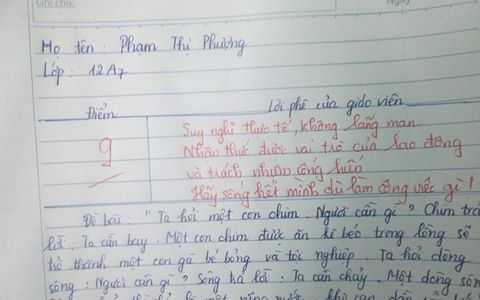 Họ tên : Phạm Thị Phương
Lớp : 12A7
Điểm
Lời phê của giáo viên
9
Suy nghĩ thực tế, không lãng mạn
Nhận thức được vai trò của lao động
và trách nhiệm cống hiến
Hãy sống hết mình dù làm công việc gì !
Đề bài : " Ta hỏi một con chim : Ngươi cần gì ? Chim trả
lời : Ta cần bay . Một con chim được ăn kê béo trong lồng sẽ
trở thành một con gà bé bỏng và tội nghiệp . Ta hỏi dòng
sông : Ngươi cần gì ? Sông trả lời : Ta cần chảy . Một dòng sông